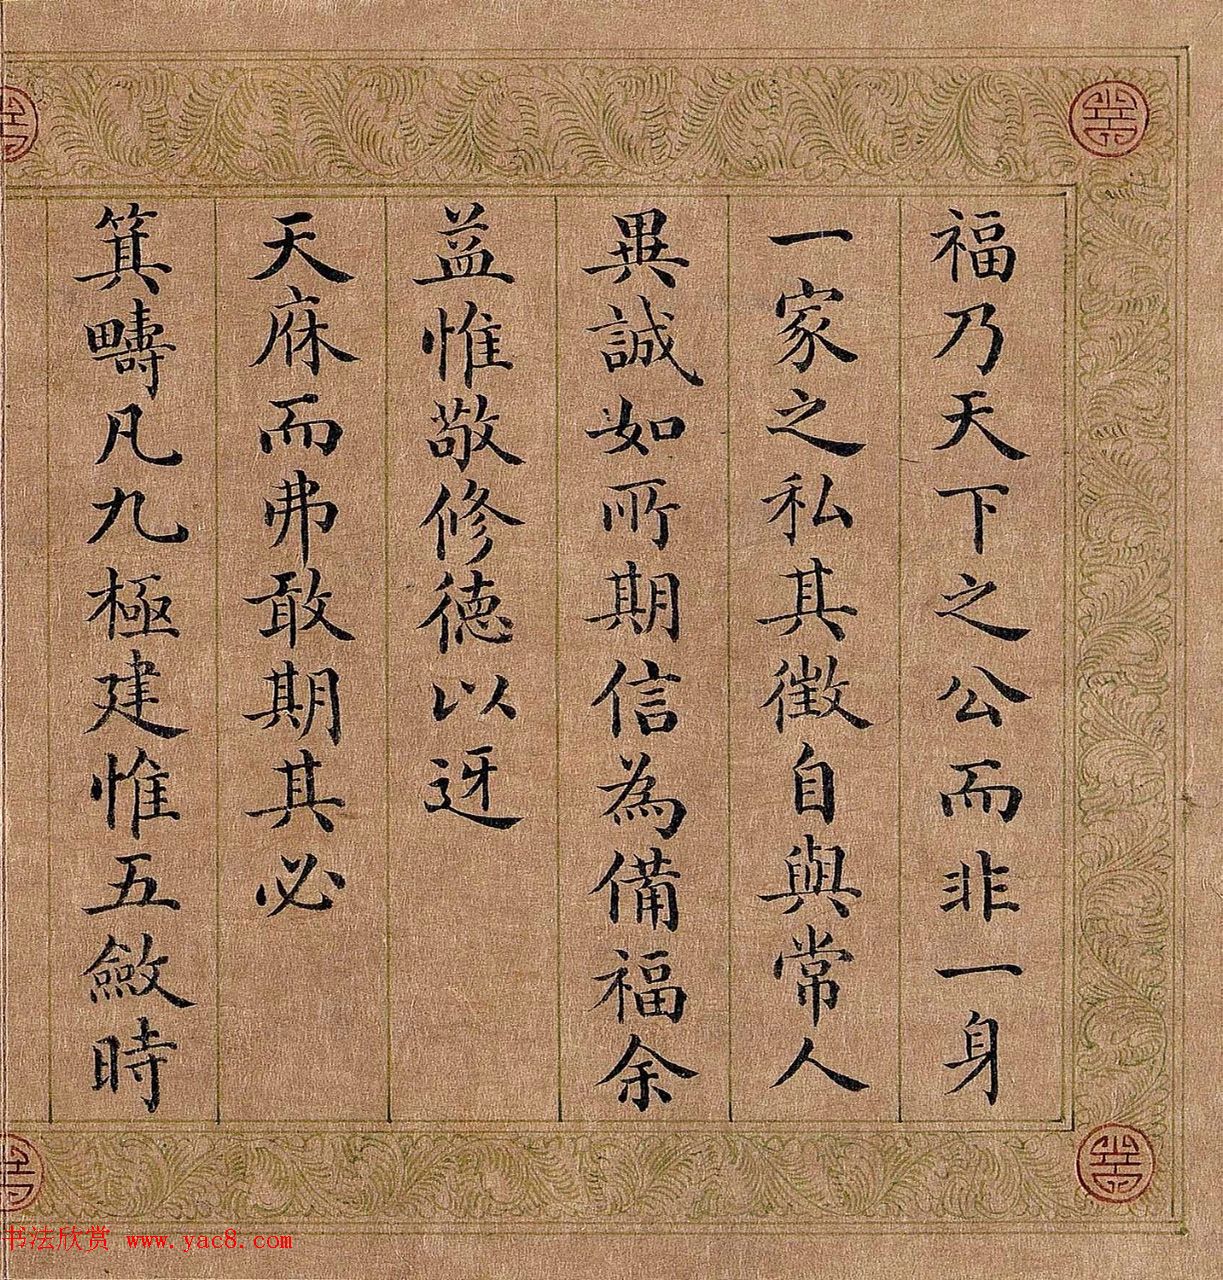 福乃天下之公而非一身
一家之私其徵自與常人
異誠如所期信為備福余
益惟敬修德以迓
天庥而弗敢期其必
箕疇凡九極建惟五斂時
书法欣赏 www.yac8.com